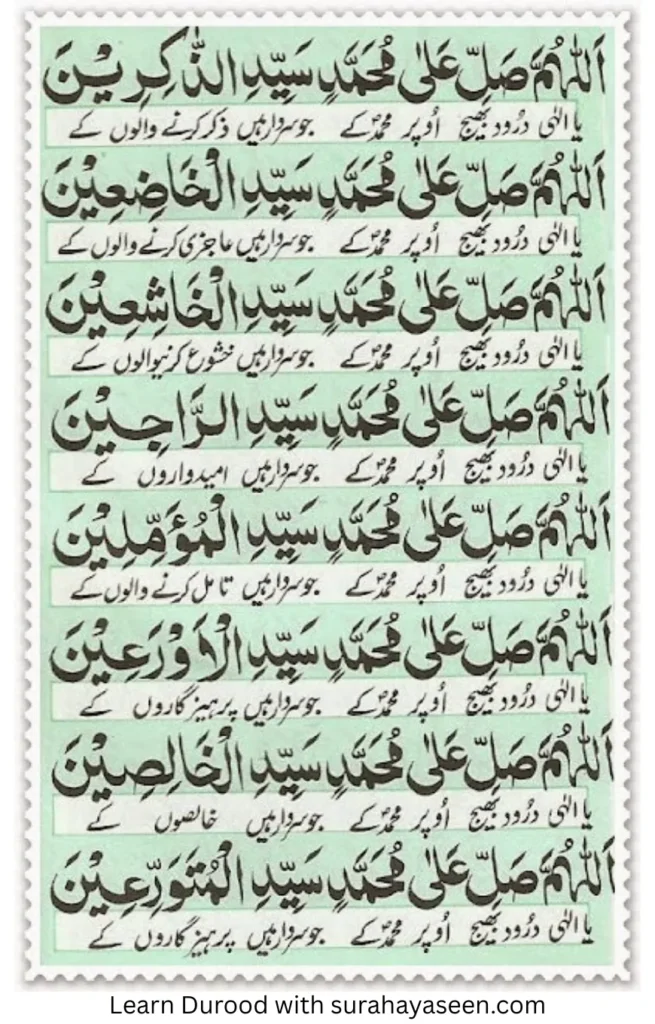 اَللّٰهُمَّ صَلِّ عَلٰى مُحَمَّدٍ سَيِّدِ الذّٰكِرِيْنَ
یا الٰہی درُود بھیج اُوپر محمدؐ کے جو سردار ہیں ذکر کرنے والوں کے
اَللّٰهُمَّ صَلِّ عَلٰى مُحَمَّدٍ سَيِّدِ الْخَاضِعِيْنَ
یا الٰہی درُود بھیج اُوپر محمدؐ کے جو سردار ہیں عاجزی کرنے والوں کے
اَللّٰهُمَّ صَلِّ عَلٰى مُحَمَّدٍ سَيِّدِ الْخَاشِعِيْنَ
یا الٰہی درُود بھیج اُوپر محمدؐ کے جو سردار ہیں خشوع کرنیوالوں کے
اَللّٰهُمَّ صَلِّ عَلٰى مُحَمَّدٍ سَيِّدِ الرَّاجِيْنَ
یا الٰہی درُود بھیج اُوپر محمدؐ کے جو سردار ہیں امیدواروں کے
اَللّٰهُمَّ صَلِّ عَلٰى مُحَمَّدٍ سَيِّدِ الْمُؤَمِّلِيْنَ
یا الٰہی درُود بھیج اُوپر محمدؐ کے جو سردار ہیں تامل کرنے والوں کے
اَللّٰهُمَّ صَلِّ عَلٰى مُحَمَّدٍ سَيِّدِ الْاَوْرَعِيْنَ
یا الٰہی درُود بھیج اُوپر محمدؐ کے جو سردار ہیں پرہیزگاروں کے
اَللّٰهُمَّ صَلِّ عَلٰى مُحَمَّدٍ سَيِّدِ الْخَالِصِيْنَ
یا الٰہی درُود بھیج اُوپر محمدؐ کے جو سردار ہیں خالصوں کے
اَللّٰهُمَّ صَلِّ عَلٰى مُحَمَّدٍ سَيِّدِ الْمُتَوَرِّعِيْنَ
یا الٰہی درُود بھیج اُوپر محمدؐ کے جو سردار ہیں پرہیزگاروں کے
Learn Durood with surahayaseen.com